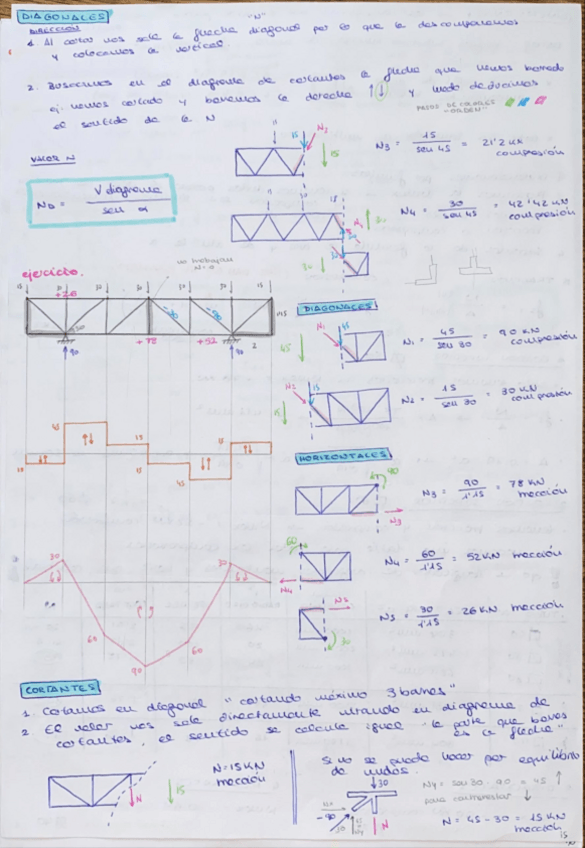 DIAGONALES
DIRECCIÓN "N"
1. Al cortar nos sale la flecha diagonal por lo que la descomponemos
y colocamos la vertical.
2. Buscamos en el diagrama de cortantes la flecha que hemos borrado
si hemos cortado y borremos la derecha ↑↓ y luego deducimos
el sentido de la N
PASOS DE COLORES
"ORDEN"
VALOR N
N_D = V diagrama / sen α
15
N3
15
N3 = 15 / sen 45 = 21'2 KN
compresión
15
30
30
30
N4 = 30 / sen 45 = 42'42 KN
compresión
no trabajan
N=0
ejercicio.
15 30 30 30 30 30 15
+26
-30
-90
-30
90
+78
+52
90
2
DIAGONALES
N1
45
45
N1 = 45 / sen 30 = 90 KN
compresión
N2
15
15
N2 = 15 / sen 30 = 30 KN
compresión
45
15
15
15
15
45
HORIZONTALES
90
N3
N3 = 90 / 1'15 = 78 KN
tracción
60
N4
N4 = 60 / 1'15 = 52 KN tracción
N5
30
N5 = 30 / 1'15 = 26 KN tracción
30
30
60
60
90
CORTANTES
1. Cortamos en diagonal "cortando máximo 3 barras"
2. El valor nos sale directamente mirando en diagrama de
cortantes, el sentido se calcula igual "la parte que borras
es la flecha"
N
15
N=15 KN
tracción
Si no se puede hacer por equilibrio
de nudos.
30
-90
30
N
Ny = sen 30 · 90 = 45 ↑
para contrarrestar ↓
N = 45 - 30 = 15 KN
tracción